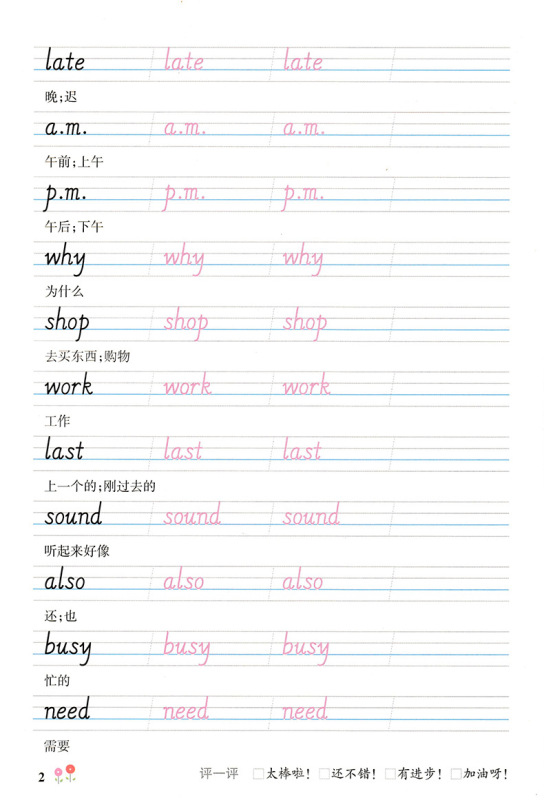 late late late
晚;迟
a.m. a.m. a.m.
午前;上午
p.m. p.m. p.m.
午后;下午
why why why
为什么
shop shop shop
去买东西;购物
work work work
工作
last last last
上一个的;刚过去的
sound sound sound
听起来好像
also also also
还;也
busy busy busy
忙的
need need need
需要
2 评一评 □太棒啦! □还不错! □有进步! □加油呀!